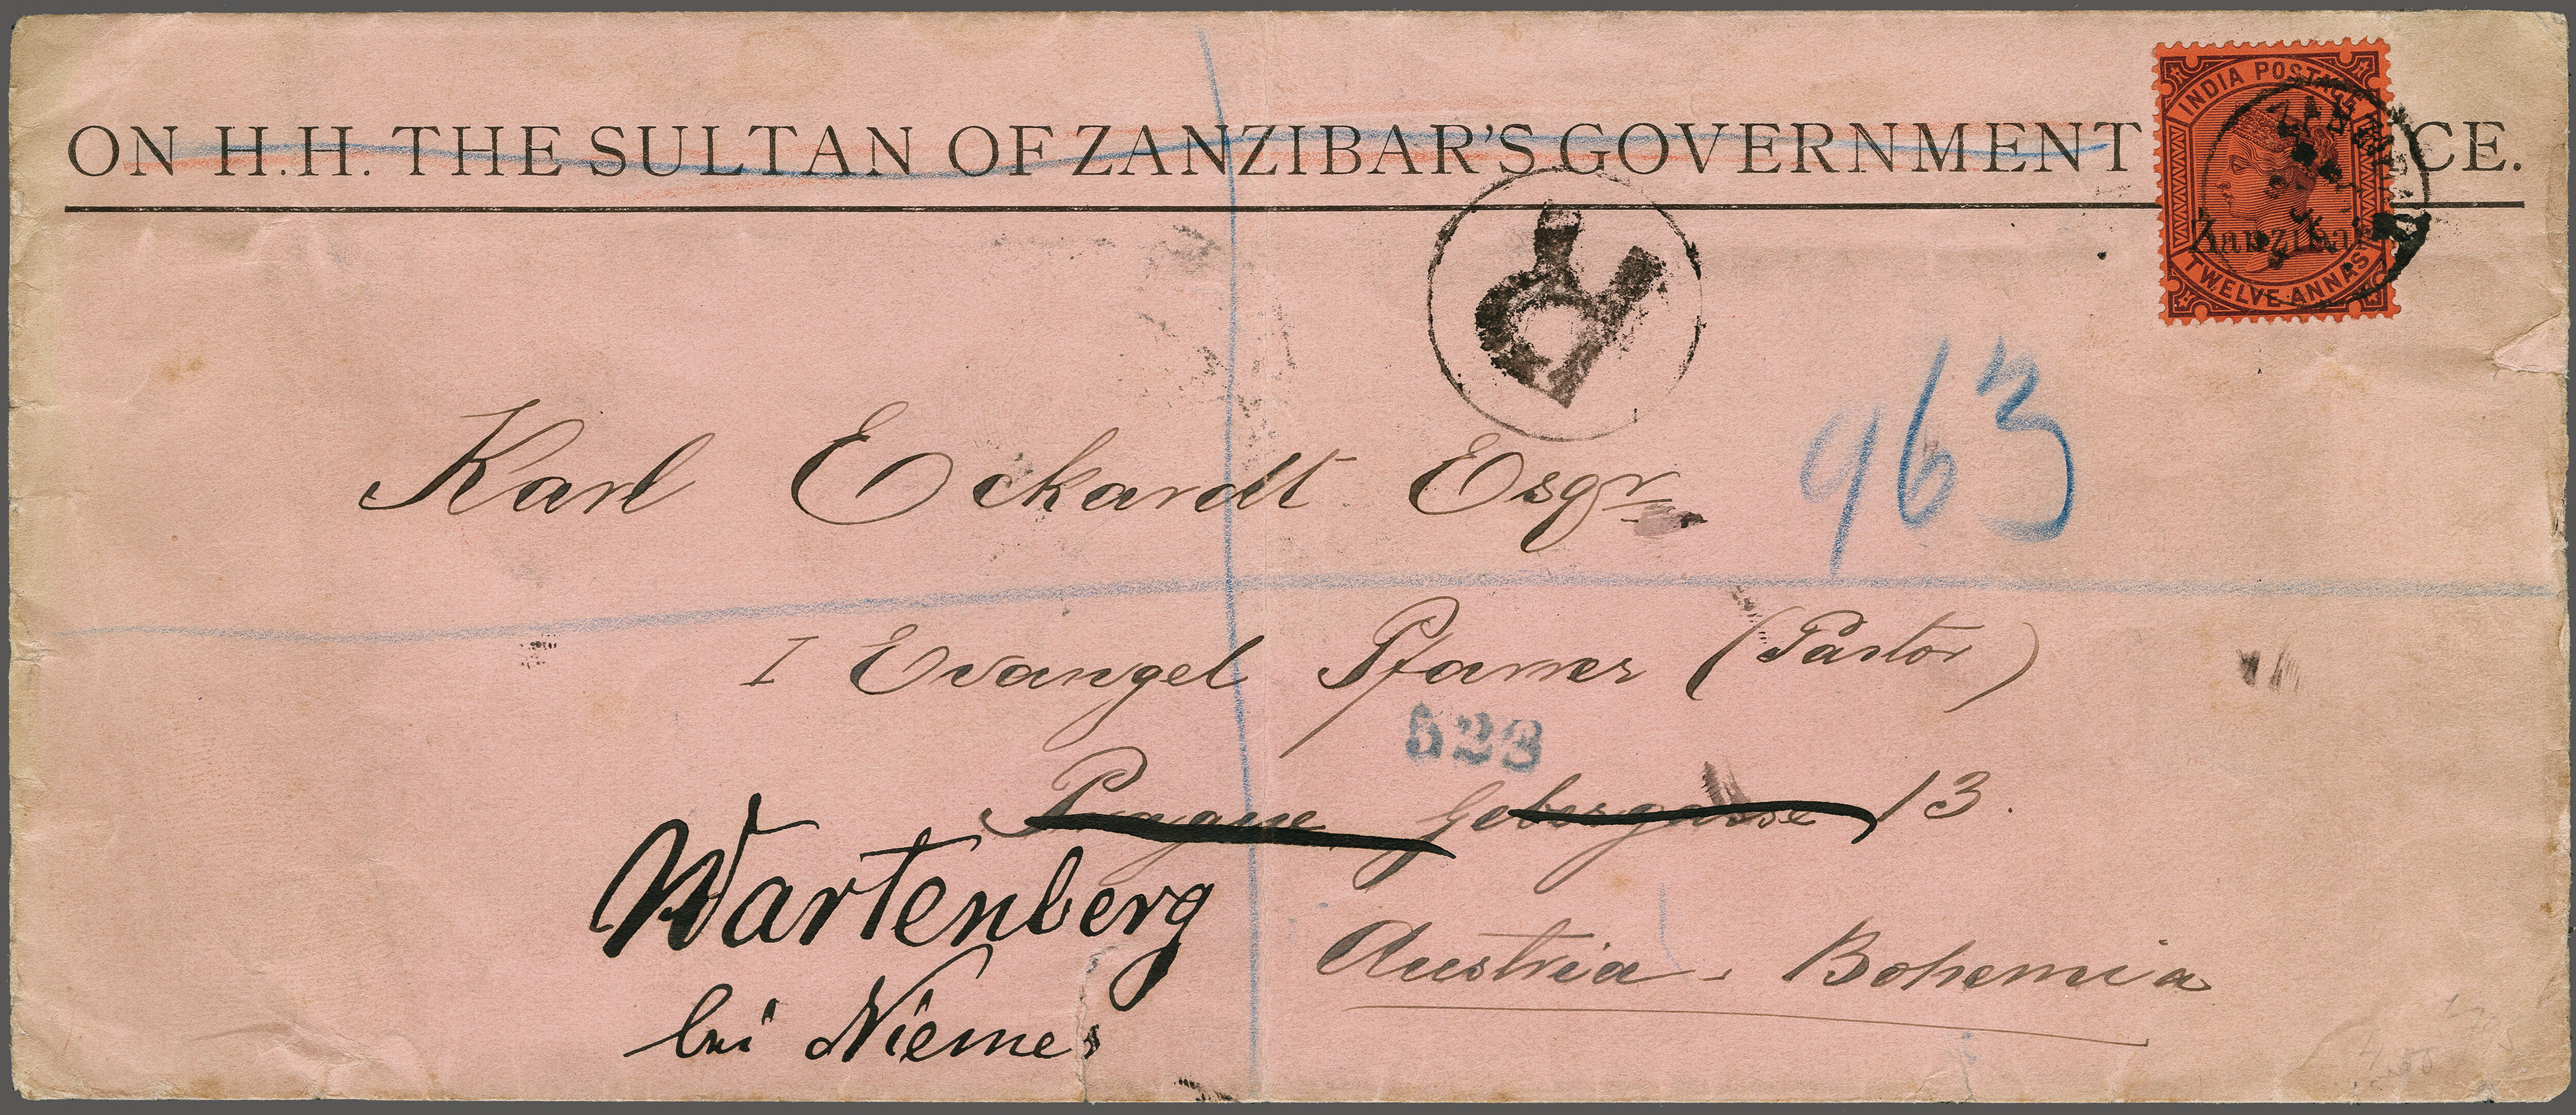 ON H.H. THE SULTAN OF ZANZIBAR'S GOVERNMENT CE.
INDIA POSTAGE
Zanzibar
TWELVE ANNAS
R
963
Karl Eckardt Esqr
I Evangel Pfarrer (Pastor)
523
Prague Gebergasse 13.
Wartenberg
bei Niemes
Austria - Bohemia